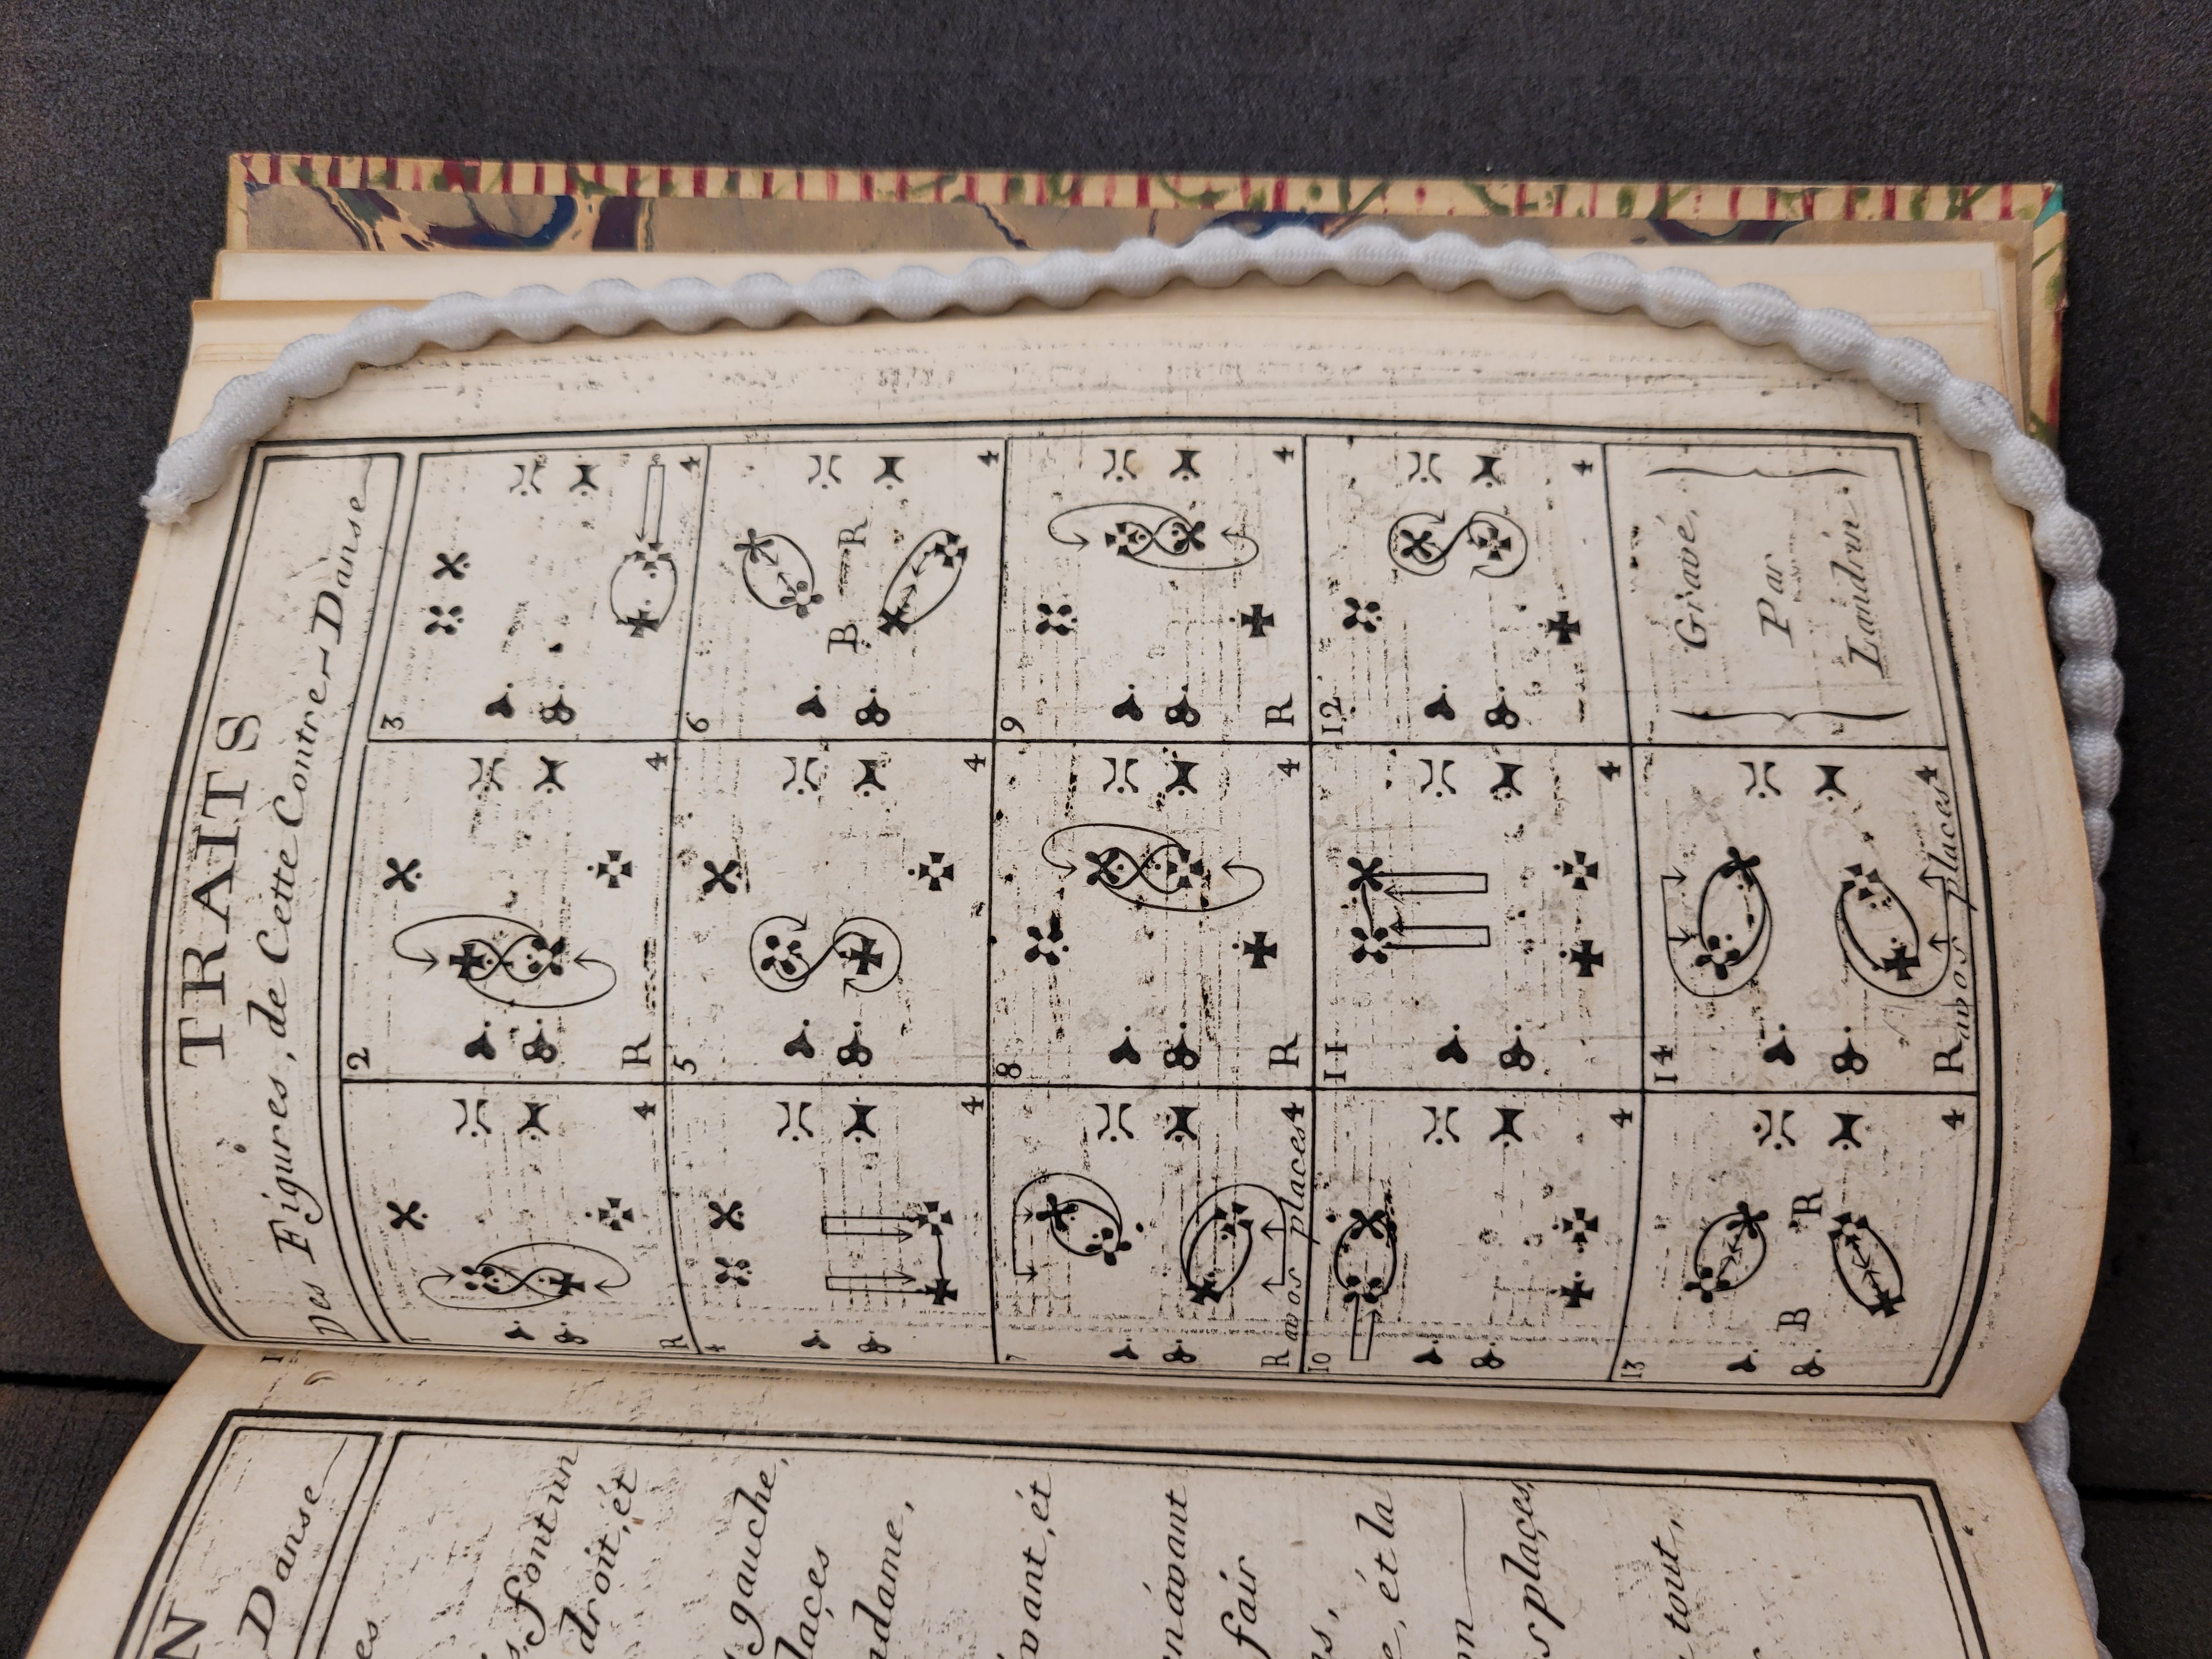 TRAITS
Des Figures, de Cette Contre-Danse
1
R 4
2
R 4
3
4
4
4
5
4
6
B R
4
7
R a vos places 4
8
R 4
9
R 4
10
4
11
4
12
4
13
B R
4
14
R a vos places 4
Gravé,
Par
Landrin
N
Danse
es
s, font un
droit, ét
gauche,
laçes
adame,
vant, ét
n avant
fair
us,
e, ét la
on
s plaçes,
tout,